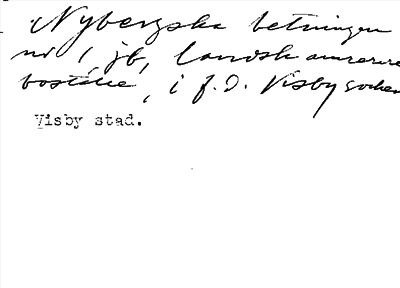 Nybergska betningen
nr 1, jb, landskamrerare
boställe, i f. d. Visby socken
Visby stad.